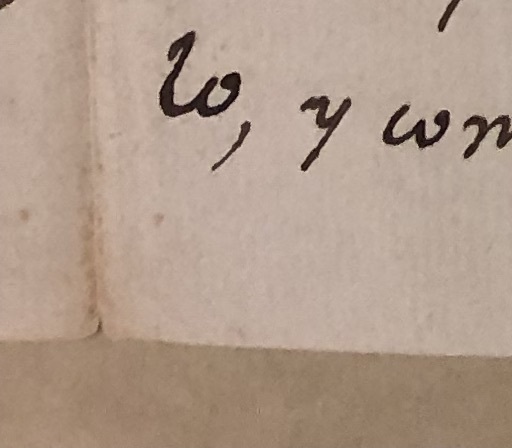 lo, y com